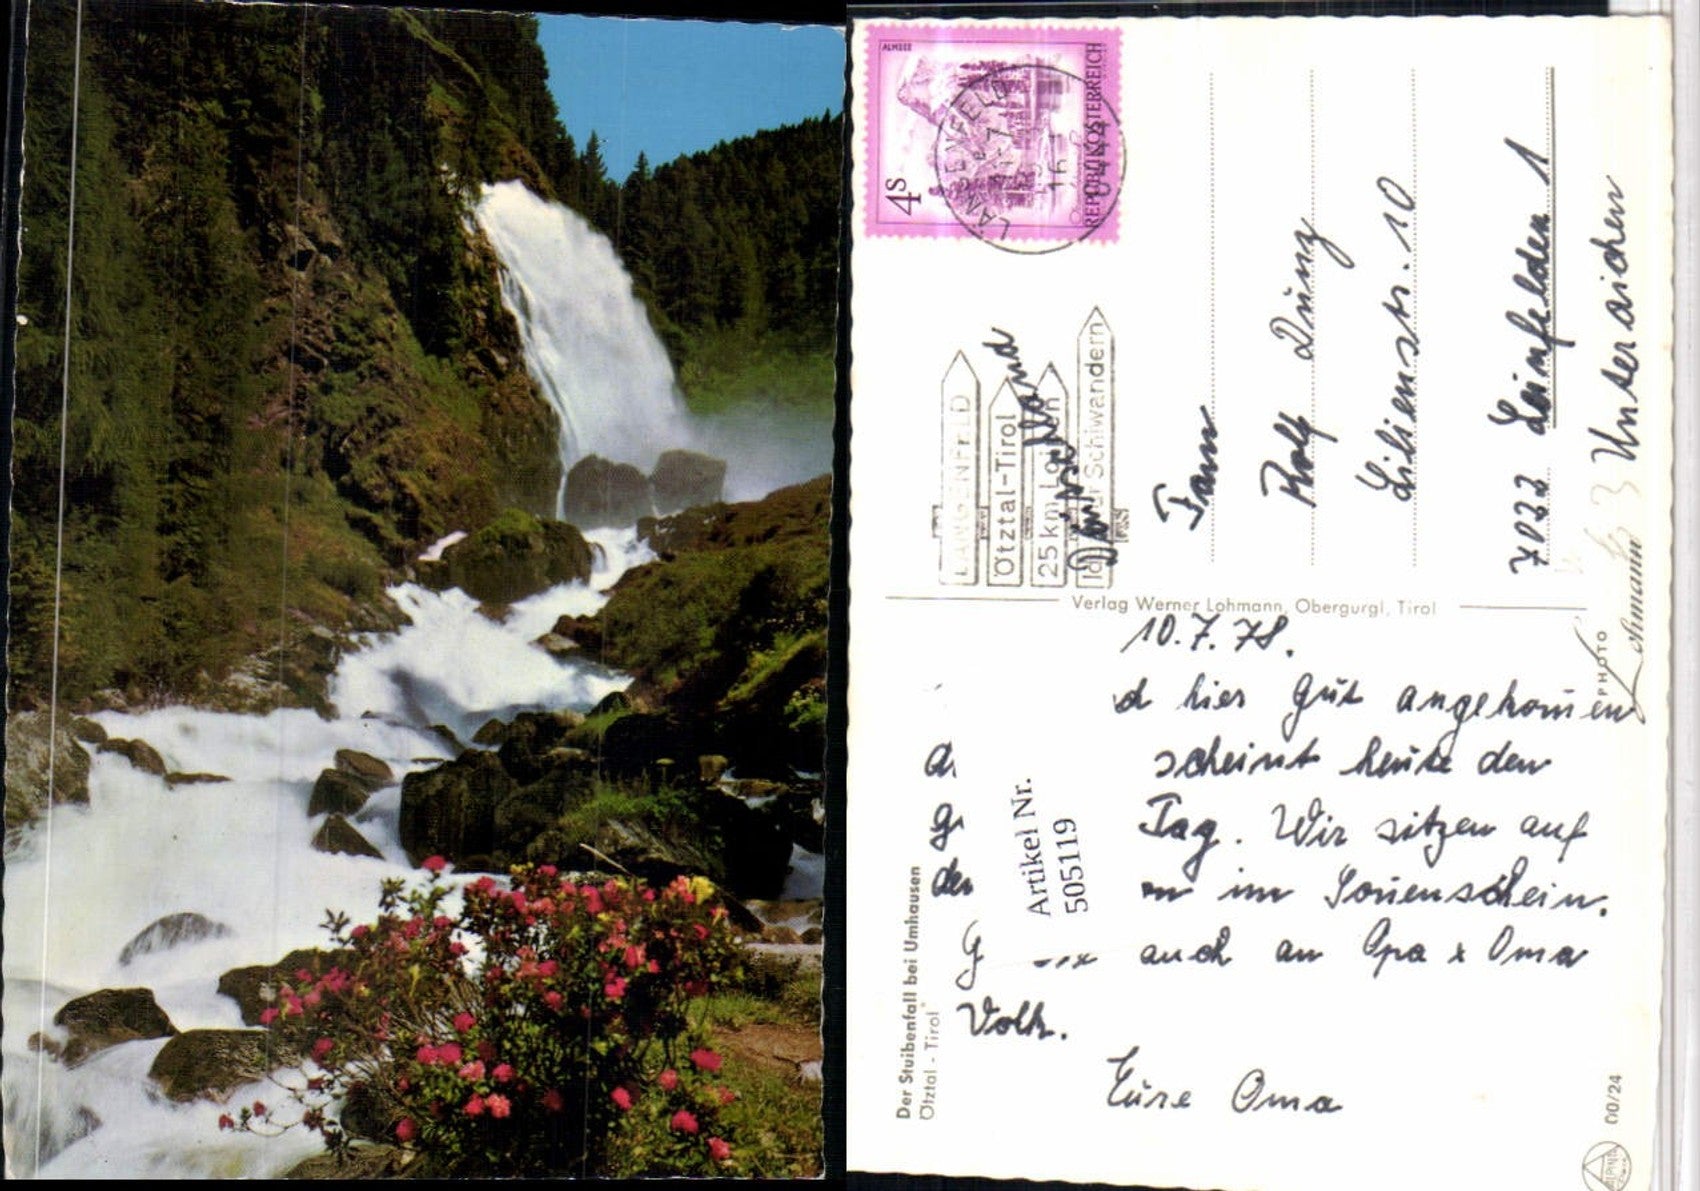 ALMSEE
4s
REPUBLIK ÖSTERREICH
LÄNGENFELD
6444
LÄNGENFELD
Ötztal-Tirol
25 km Loipen
Schiwandern
Frau
Rolf
Lilienstr. 10
7022 Leinfelden 1
Unteraichen
Verlag Werner Lohmann, Obergurgl, Tirol
PHOTO Lohmann
10.7.78.
hier gut angekommen
scheint heute den
Tag. Wir sitzen auf
der im Sonnenschein.
auch an Opa + Oma
Volk.
Eure Oma
Artikel Nr.
505119
Der Stuibenfall bei Umhausen
Ötztal - Tirol
00/24